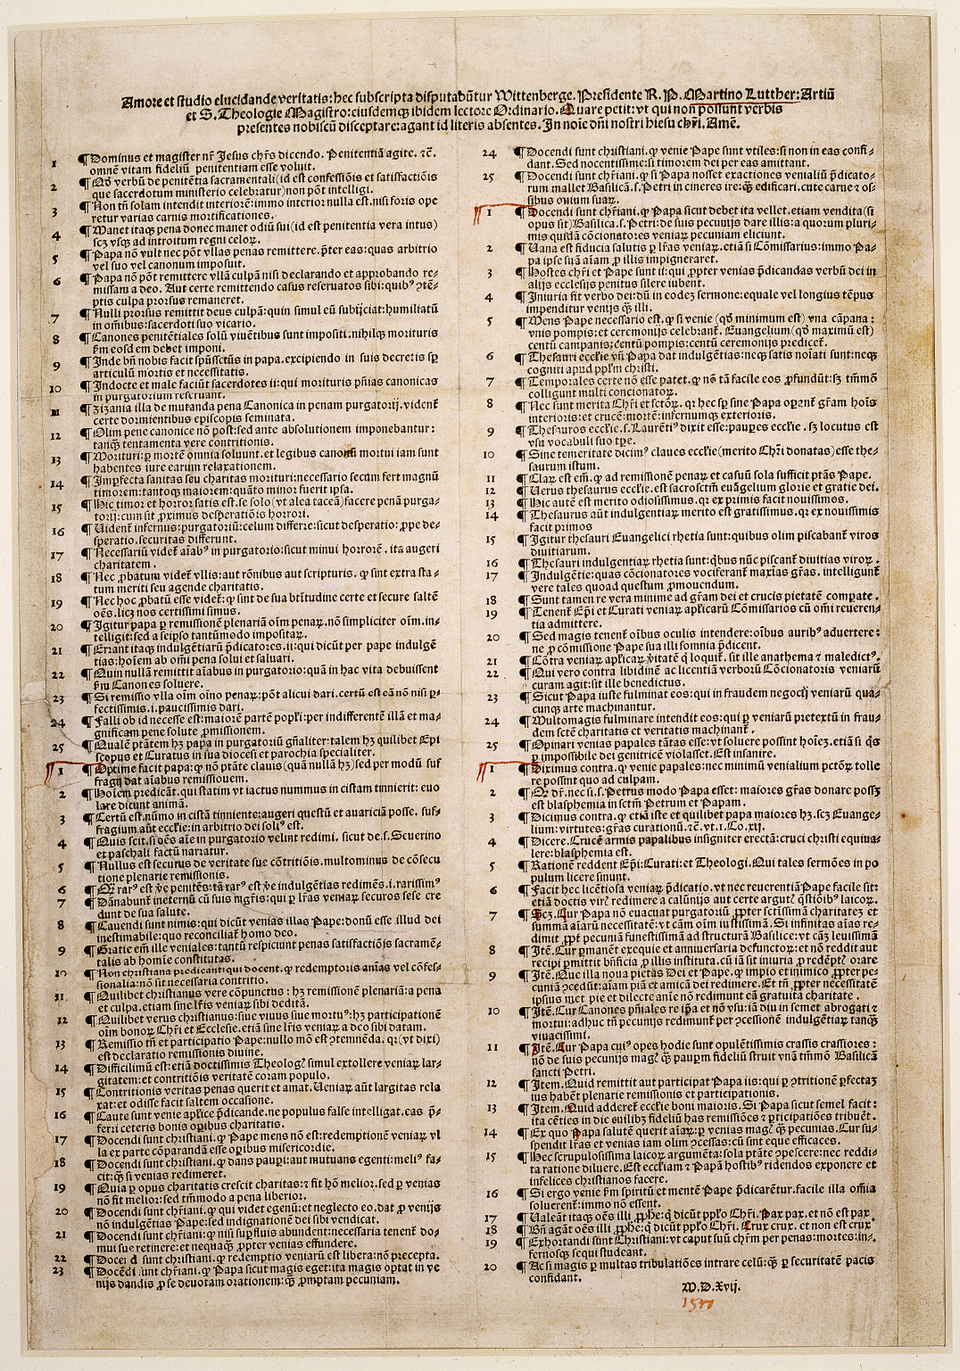 Amore et studio elucidande veritatis: hec subscripta disputabũtur Wittenberge. Presidente R. P. Martino Lutther: Artiũ
et S. Theologie Magistro: eiusdemq; ibidem lectore Ordinario. Quare petit: vt qui non possunt verbis
presentes nobiscũ disceptare: agant id literis absentes. In noĩe dñi nostri hiesu chr̃i. Amẽ.
1 ¶ Dominus et magister nr̃ Jesus chr̃s dicendo. Penitentiã agite. ⁊c̃.
omnẽ vitam fideliũ penitentiam esse voluit.
2 ¶ Qđ verbũ de penitẽtia sacramentali (id est confessiõis et satisfactiõis
que sacerdotum ministerio celebratur) non põt intelligi.
3 ¶ Non tñ solam intendit interiorẽ: immo interior nulla est. nisi foris ope
retur varias carnis mortificationes.
4 ¶ Manet itaq; pena donec manet odiũ sui (id est penitentia vera intus)
scz vsq; ad introitum regni celoꝝ.
5 ¶ Papa nõ vult nec põt vllas penas remittere. p̃ter eas: quas arbitrio
vel suo vel canonum imposuit.
6 ¶ Papa nõ põt remittere vllã culpã nisi declarando et approbando re⸗
missam a deo. Aut certe remittendo casus reseruatos sibi: quibꝰ ꝯtẽ⸗
ptis culpa prorsus remaneret.
7 ¶ Nulli prorsus remittit deus culpã: quin simul eũ subijciat: humiliatũ
in oĩbus: sacerdoti suo vicario.
8 ¶ Canones penitẽtiales solũ viuẽtibus sunt impositi. nihilq; morituris
ẜm eosdem debet imponi.
9 ¶ Inde bñ nobis facit sp̃ussctũs in papa. excipiendo in suis decretis sp̱
articulũ mortis et necessitatis.
10 ¶ Indocte et male faciũt sacerdotes ii: qui morituris pñias canonicas
in purgatorium reseruant.
11 ¶ Zizania illa de mutanda pena Canonica in penam purgatorij. vident̃
certe dormientibus episcopis seminata.
12 ¶ Olim pene canonice nõ post: sed ante absolutionem imponebantur:
tanq; tentamenta vere contritionis.
13 ¶ Morituri: ꝑ mortẽ omnia soluunt. et legibus canonũ mortui iam sunt
habentes iure earum relaxationem.
14 ¶ Imperfecta sanitas seu charitas morituri: necessario secum fert magnũ
timorem: tantoq; maiorem: quãto minor fuerit ipsa.
15 ¶ Hic timor et horror satis est. se solo (vt alia taceã) facere penã purga⸗
torij: cum sit ꝓximus desperatiõis horrori.
16 ¶ Videnť infernus: purgatoriũ: celum differre: sicut desperatio: ꝓpe de⸗
speratio. securitas differunt.
17 ¶ Necessariũ videť aĩabꝰ in purgatorio: sicut minui horrorẽ. ita augeri
charitatem.
18 ¶ Nec ꝓbatum videť vllis: aut rõnibus aut scripturis. ꝙ sint extra sta⸗
tum meriti seu agende charitatis.
19 ¶ Nec hoc ꝓbatũ esse videť: ꝙ sint de sua bt̃itudine certe et secure saltẽ
oẽs. licz nos certissimi simus.
20 ¶ Igitur papa ꝑ remissionẽ plenariã oĩm penaꝝ. nõ simpliciter oĩm. in⸗
telligit: sed a seipso tantũmodo impositaꝝ.
21 ¶ Errant itaq; indulgẽtiarũ p̃dicatores. ii: qui dicũt per pape indulgẽ
tias: hoĩem ab om̃i pena solui et saluari.
22 ¶ Quin nullã remittit aĩabus in purgatorio: quã in hac vita debuissent
ẜm Canones soluere.
23 ¶ Si remissio vlla oĩm oĩno penaꝝ: põt alicui dari. certũ est eã nõ nisi ꝑ⸗
fectissimis. i. paucissimis dari.
24 ¶ Falli ob id necesse est: maiorẽ partẽ popli: per indifferentẽ illã et ma⸗
gnificam pene solute ꝓmissionem.
25 ¶ Qualẽ ptãtem hz papa in purgatoriũ gñaliter: talem hz quilibet Epi
scopus et Curatus in sua diocesi et parochia specialiter.
1 ¶ Optime facit papa: ꝙ nõ ptãte clauis (quã nullã hz) sed per modũ suf
fragij dat aĩabus remissionem.
2 ¶ Hoĩem predicãt. qui statim vt iactus nummus in cistam tinnierit: euo
lare dicunt animã.
3 ¶ Certũ est. nũmo in cistã tinniente: augeri questũ et auariciã posse. suf⸗
fragium aũt eccl̃ie: in arbitrio dei solꝰ est.
4 ¶ Quis scit. si oẽs aĩe in purgatorio velint redimi. sicut de. s. Seuerino
et paschali factũ narratur.
5 ¶ Nullus est securus de veritate sue cõtritiõis. multominus de cõsecu
tione plenarie remissionis.
6 ¶ Q̃ rarꝰ est ꝟe penitẽs: tã rarꝰ est ꝟe indulgẽtias redimẽs. i. rarissimꝰ
7 ¶ Dãnabunť ineternũ cũ suis mgr̃is: qui ꝑ lr̃as veniaꝝ securos sese cre
dunt de sua salute.
8 ¶ Cauendi sunt nimis: qui dicũt venias illas Pape: donũ esse illud dei
inestimabile: quo reconciliať homo deo.
9 ¶ Gratie eĩ ille veniales: tantũ respiciunt penas satisfactiõis sacramẽ⸗
talis ab homĩe constitutas.
10 ¶ Non christiana predicant: qui docent. ꝙ redempturis aĩas vel cõfess⸗
sionalia: nõ sit necessaria contritio.
11 ¶ Quilibet christianus vere cõpunctus: hz remissionẽ plenariã: a pena
et culpa. etiam sine lr̃is veniaꝝ sibi debitã.
12 ¶ Quilibet verus christianus: siue viuus siue mortuꝰ: hz participationẽ
oĩm bonoꝝ Chr̃i et Ecclesie. etiã sine lr̃is veniaꝝ a deo sibi datam.
13 ¶ Remissio tñ et participatio Pape: nullo mõ est ꝯtemnẽda. qꝛ (vt dixi)
est declaratio remissionis diuine.
14 ¶ Difficilimũ est: etiã doctissimis Theologꝭ simul extollere veniaꝝ lar⸗
gitatem: et contritiõis veritatẽ coram populo.
15 ¶ Contritionis veritas penas querit et amat. Veniaꝝ aũt largitas rela
xat: et odisse facit saltem occasione.
16 ¶ Caute sunt venie apl̃ice p̃dicande. ne populus false intelligat. eas p̃⸗
ferri ceteris bonis oꝑibus charitatis.
17 ¶ Docendi sunt christiani. ꝙ Pape mens nõ est: redemptionẽ veniaꝝ vl
la ex parte cõparandã esse oꝑibus misericordie.
18 ¶ Docendi sunt christiani. ꝙ dans pauꝑi: aut mutuans egenti: meliꝰ fa⸗
cit: ꝙ si venias redimeret.
19 ¶ Quia ꝑ opus charitatis crescit charitas: ⁊ fit hõ melior. sed ꝑ venias
nõ fit melior: sed tm̃modo a pena liberior.
20 ¶ Docendi sunt chr̃iani. ꝙ qui videt egenũ: et neglecto eo. dat ꝓ venijs
nõ indulgẽtias Pape: sed indignationẽ dei sibi vendicat.
21 ¶ Docendi sunt chr̃iani. ꝙ nisi suꝑfluis abundent: necessaria tenent̃ do⸗
mui sue retinere: et nequaꝙ ꝓpter venias effundere.
22 ¶ Docẽdi sunt christiani. ꝙ redemptio veniarũ est libera: nõ precepta.
23 ¶ Docẽdi sunt chr̃iani. ꝙ Papa sicut magis eget: ita magis optat in ve
nijs dandis ꝓ se deuotam orationem: ꝙ̃ ꝓmptam pecuniam.
24 ¶ Docendi sunt chr̃iani. ꝙ venie Pape sunt vtiles: si non in eas confi⸗
dant. Sed nocentissime: si timorem dei per eas amittant.
25 ¶ Docendi sunt chr̃iani. ꝙ si Papa nosset exactiones venialiũ p̃dicato⸗
rum mallet Basilicã. s. Petri in cineres ire: ꝙ̃ edificari. cute carne ⁊ os⸗
sibus ouium suaꝝ.
1 ¶ Docendi sunt chr̃iani. ꝙ Papa sicut debet ita vellet. etiam vendita (si
opus sit) Basilica. s. Petri: de suis pecunijs dare illis: a quorum pluri⸗
mis quosdã cõcionatores veniaꝝ pecuniam eliciunt.
2 ¶ Vana est fiducia salutis ꝑ lr̃as veniaꝝ. etiã si Cõmissarius: immo Pa⸗
pa ipse suã aĩam ꝓ illis impigneraret.
3 ¶ Hostes chr̃i et Pape sunt ii: qui ꝓpter venias p̃dicandas verbũ dei in
alijs ecclesijs penitus silere iubent.
4 ¶ Iniuria fit verbo dei: dũ in eodez sermone: equale vel longius tẽpus
impenditur venijs ꝙ̃ illi.
5 ¶ Mens Pape necessario est. ꝙ si venie (qđ minimum est) vna cãpana:
vnis pompis: et ceremonijs celebranť. Euangelium (qđ maximũ est)
centũ campanis: centũ pompis: centũ ceremonijs predicet̃.
6 ¶ Thesauri eccl̃ie vñ Papa dat indulgẽtias: neq; satis noĩati sunt: neq;
cogniti apud ppl̃m christi.
7 ¶ Temporales certe nõ esse patet. ꝙ nõ tã facile eos ꝓfundũt: sz tm̃mõ
colligunt multi concionatoꝝ.
8 ¶ Nec sunt merita Chr̃i et sctõꝝ. qꝛ hec sp̱ sine Papa operant̃ gr̃am hoĩs
interioris: et crucẽ: mortẽ: infernumq; exterioris.
9 ¶ Thesauros eccl̃ie. s. Laurẽtiꝰ dixit esse: pauꝑes eccl̃ie. sz locutus est
vsu vocabuli suo tꝑe.
10 ¶ Sine temeritate dicimꝰ claues eccl̃ie (merito Chr̃i donatas) esse the⸗
saurum istum.
11 ¶ Claꝝ est em̃. ꝙ ad remissionẽ penaꝝ et casuũ sola sufficit ptãs Pape.
12 ¶ Verus thesaurus eccl̃ie. est sacrosctm̃ euãgelium glorie et gratie dei.
13 ¶ Hic autẽ est merito odiosissimus. qꝛ ex primis facit nouissimos.
14 ¶ Thesaurus aũt indulgentiaꝝ merito est gratissimus. qꝛ ex nouissimis
facit primos
15 ¶ Igitur thesauri Euangelici rhetia sunt: quibus olim piscabanť viros
diuitiarum.
16 ¶ Thesauri indulgentiaꝝ rhetia sunt: qbus nũc piscanť diuitias viroꝝ.
17 ¶ Indulgẽtie: quas cõcionatores vociferanť maximas gr̃as. intelligunť
vere tales quoad questum ꝓmouendum.
18 ¶ Sunt tamen re vera minime ad gr̃am dei et crucis pietatẽ compate.
19 ¶ Tenenť Epĩ et Curati veniaꝝ apl̃icarũ Cõmissarios cũ om̃i reueren⸗
tia admittere.
20 ¶ Sed magis tenenť oĩbus oculis intendere: oĩbus auribꝰ aduertere:
ne ꝓ cõmissione Pape sua illi somnia p̃dicent.
21 ¶ Cõtra veniaꝝ apl̃icaꝝ ꝟitatẽ q̇ loquiť. sit ille anathema ⁊ maledictꝰ.
22 ¶ Qui vero contra libidinẽ ac licentiã verborũ Cõcionatoris veniarũ
curam agit: sit ille benedictus.
23 ¶ Sicut Papa iuste fulminat eos: qui in fraudem negocij veniarũ qua⸗
cunq; arte machinantur.
24 ¶ Multomagis fulminare intendit eos: qui ꝑ veniarũ pretextũ in frau⸗
dem sctẽ charitatis et veritatis machinanť.
25 ¶ Opinari venias papales tãtas esse: vt soluere possint hoĩez. etiã si q̇s
ꝑ impossibile dei genitricẽ violasset. Est insanire.
1 ¶ Diximus contra. ꝙ venie papales: nec minimũ venialium pctõꝝ tolle
re possint quo ad culpam.
2 ¶ Q̃ dr̃. nec si. s. Petrus modo Papa esset: maiores gr̃as donare possz
est blasphemia in sctm̃ Petrum et Papam.
3 ¶ Dicimus contra. ꝙ etiã iste et quilibet papa maiores hz. scz Euange⸗
lium: virtutes: gr̃as curationũ. ⁊c̃. vt. i. Co. xij.
4 ¶ Dicere. Crucẽ armis papalibus insigniter erectã: cruci christi equiua
lere: blasphemia est.
5 ¶ Rationẽ reddent Epĩ: Curati: et Theologi. Qui tales sermões in po
pulum licere sinunt.
6 ¶ Facit hec licẽtiosa veniaꝝ p̃dicatio. vt nec reuerentiã Pape facile sit:
etiã doctis virꝭ redimere a calũnijs aut certe argutꝭ q̃stiõibꝰ laicoꝝ.
7 ¶ Scz. Cur Papa nõ euacuat purgatoriũ ꝓpter sctĩssimã charitatez et
summã aĩarũ necessitatẽ: vt cãm oĩm iustissimã. Si infinitas aĩas re⸗
dimit ꝓpť pecuniã funestissimã ad structurã Basilice: vt cãz leuissimã
8 ¶ Itẽ. Cur ꝑmanẽt exequie et anniuersaria defunctoꝝ: et nõ reddit aut
recipi ꝑmittit bñficia ꝓ illis instituta. cũ iã sit iniuria ꝓ redẽptꝭ orare
9 ¶ Itẽ. Que illa noua pietas Dei et Pape. ꝙ impio et inimico ꝓpter pe⸗
cuniã ꝯcedũt: aĩam piã et amicã dei redimere. Et tñ ꝓpter necessitatẽ
ipsius met pie et dilecte aĩe nõ redimunt eã gratuita charitate.
10 ¶ Itẽ. Cur Canones pñiales re ip̃a et nõ vsu: iã diu in semet abrogati ⁊
mortui: adhuc tñ pecunijs redimunť per ꝯcessionẽ indulgẽtiaꝝ tanꝙ̃
viuacissimi.
11 ¶ Itẽ. Cur Papa cuiꝰ opes hodie sunt opulẽtissimis crassis crassiores:
nõ de suis pecunijs magꝭ ꝙ̃ pauꝑm fideliũ struit vnã tm̃mõ Basilicã
sancti Petri.
12 ¶ Item. Quid remittit aut participat Papa iis: qui ꝑ ꝯtritionẽ ꝑfectaz
ius habẽt plenarie remissionis et participationis.
13 ¶ Item. Quid adderet̃ eccl̃ie boni maioris. Si Papa sicut semel facit:
ita cẽties in die cuilibꝫ fideliũ has remissiões ⁊ ꝑticipatiões tribuẽt.
14 ¶ Ex quo Papa salutẽ querit aĩaꝝ: ꝑ venias magꝭ ꝙ̃ pecunias. Cur su⸗
spendit lr̃as et venias iam olim ꝯcessas: cũ sint eque efficaces.
15 ¶ Hec scrupulosissima laicoꝝ argumẽta: sola ptãte ꝯpescere: nec reddi⸗
ta ratione diluere. Est eccl̃iam ⁊ Papã hostibꝰ ridendos exponere et
infelices christianos facere.
16 ¶ Si ergo venie ẜm spiritũ et mentẽ Pape p̃dicarẽtur. facile illa omnia
soluerentur: immo nõ essent.
17 ¶ Valeãt itaq; oẽs illi ꝓphe: q̇ dicũt ppl̃o Chr̃i. Pax pax. et nõ est pax.
18 ¶ Bñ agãt oẽs illi ꝓphe: q̇ dicũt ppl̃o Chr̃i. Crux crux. et non est crux
19 ¶ Exhortandi sunt Christiani: vt caput suũ chr̃m per penas: mortes: in⸗
fernosq; sequi studeant.
20 ¶ Ac si magis ꝑ multas tribulatiões intrare celũ: ꝙ̃ ꝑ securitatẽ pacis
confidant.
M.D.Xvij.
1517